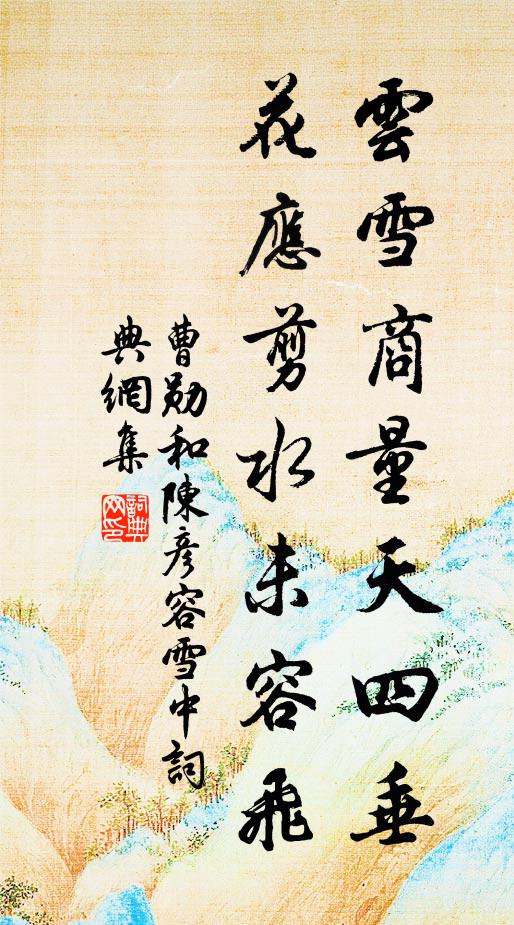 雲雪商量天四垂
花應剪水未容飛
曹勛和陳彥容雪中詞
典網集
詞典網印